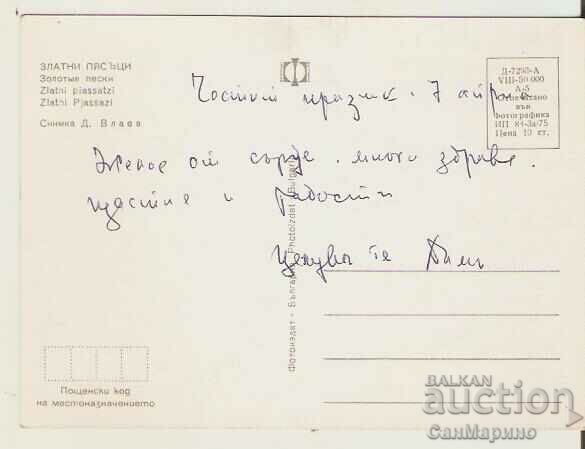 ЗЛАТНИ ПЯСЪЦИ
Золотые пески
Zlatni piassatzi
Zlatni Pjassazi
Снимка Д. Влаев
Д-7295-А
VIII-50 000
А-5
Отпечатано
във
Фотографика
ИП 84-3а/75
Цена 10 ст.
Честит празник. 7 април
Желая от сърце. много здраве.
щастие и радости
Целува те
Фотоиздат - България Photoizdat - Bulgaria
Пощенски код
на местоназначението
BALKAN
auction
СанМарино